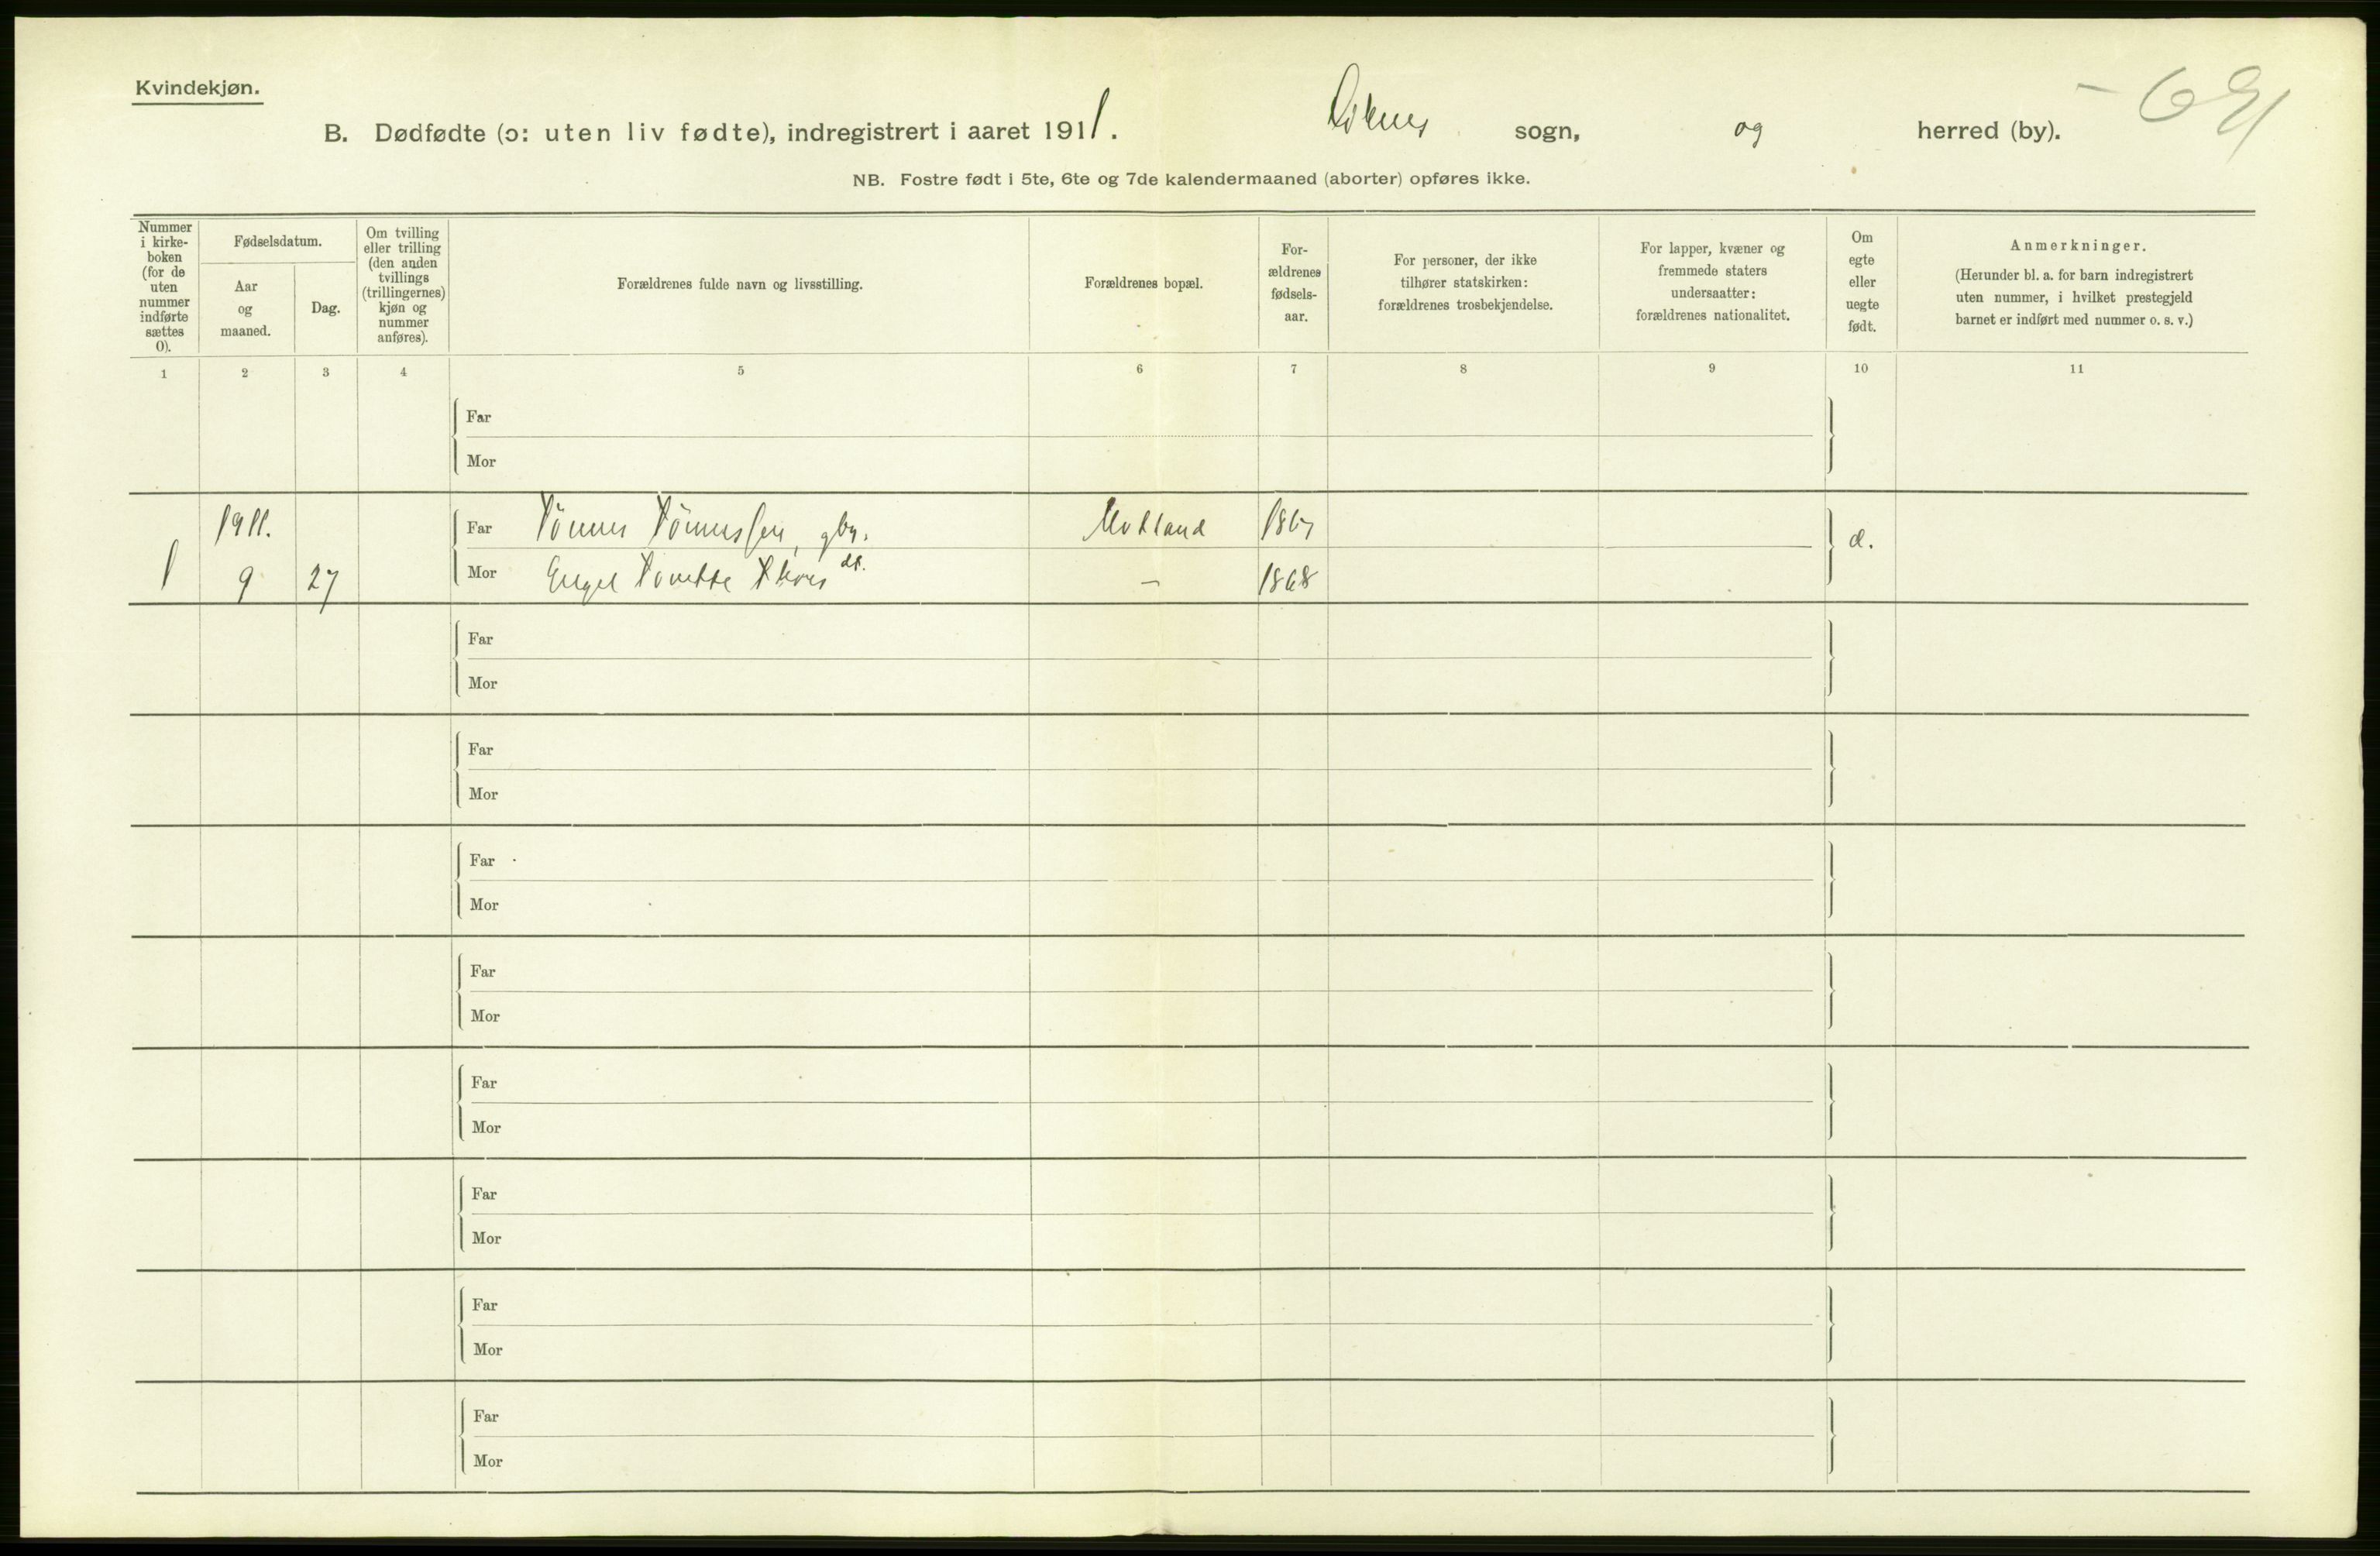 Kvindekjøn.
B. Dødfødte (ɔ: uten liv fødte), indregistrert i aaret 1911. sogn, og herred (by).
NB. Fostre født i 5te, 6te og 7de kalendermaaned (aborter) opføres ikke.
Nummer i kirke-boken (for de uten nummer indførte sættes 0).
Fødselsdatum.
Aar og maaned.
Dag.
Om tvilling eller trilling (den anden tvillings (trillingernes) kjøn og nummer anføres).
Forældrenes fulde navn og livsstilling.
Forældrenes bopæl.
For-ældrenes fødsels-aar.
For personer, der ikke tilhører statskirken: forældrenes trosbekjendelse.
For lapper, kvæner og fremmede staters undersaatter: forældrenes nationalitet.
Om egte eller uegte født.
Anmerkninger.
(Herunder bl. a. for barn indregistrert uten nummer, i hvilket prestegjeld barnet er indført med nummer o. s. v.)
1 2 3 4 5 6 7 8 9 10 11
Far
Mor
1911.
Far Tönnes Tönnessen, gbr. 
1 9 27
Mor Engel Tonette
– 1868
Far
Mor
Far
Mor
Far
Mor
Far
Mor
Far
Mor
Far
Mor
Far
Mor
Far
Mor